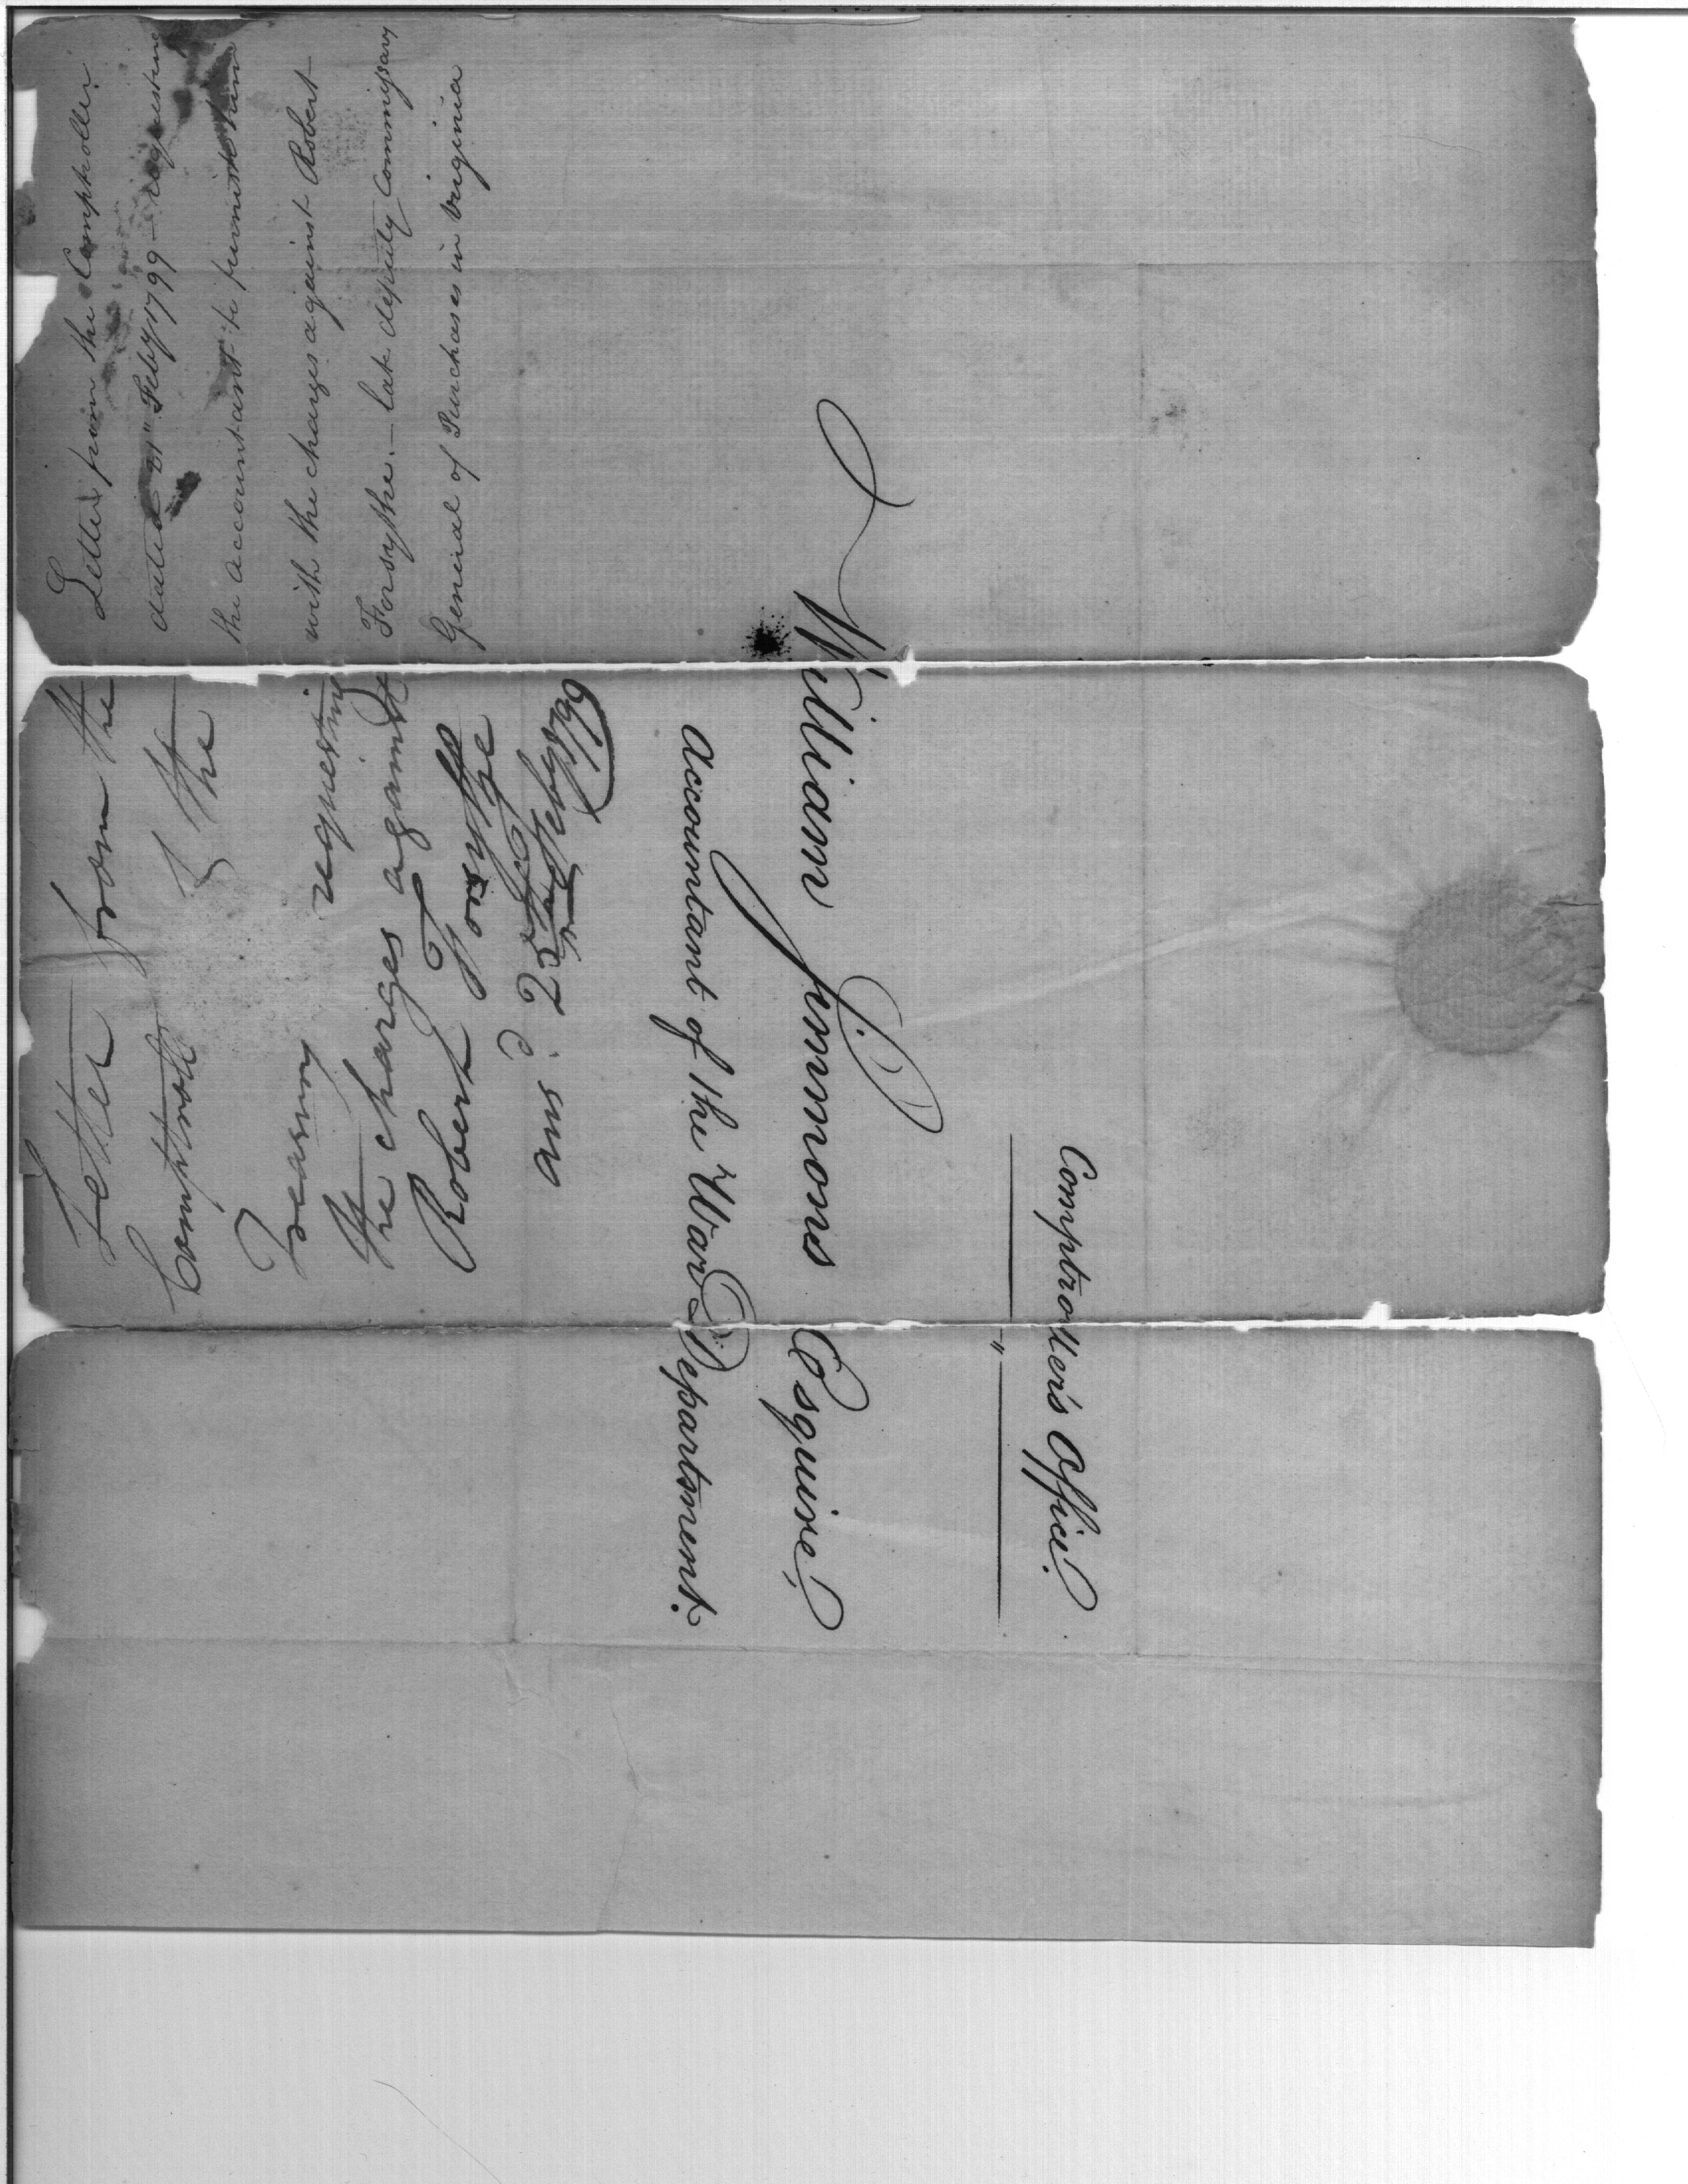 Letter from the Comptroller
dated 21" Feby 1799 - requesting
the accountant to furnish him
with the charges against Robert
Forsythe. - late deputy Commissary
General of Purchases in Virginia
Letter from the
Comptroller of the
Treasury requesting
the charges against
Robert Forsythe
ans.d 23d Feby
William Simmons Esquire,
Accountant of the War Department.
Comptroller's Office.